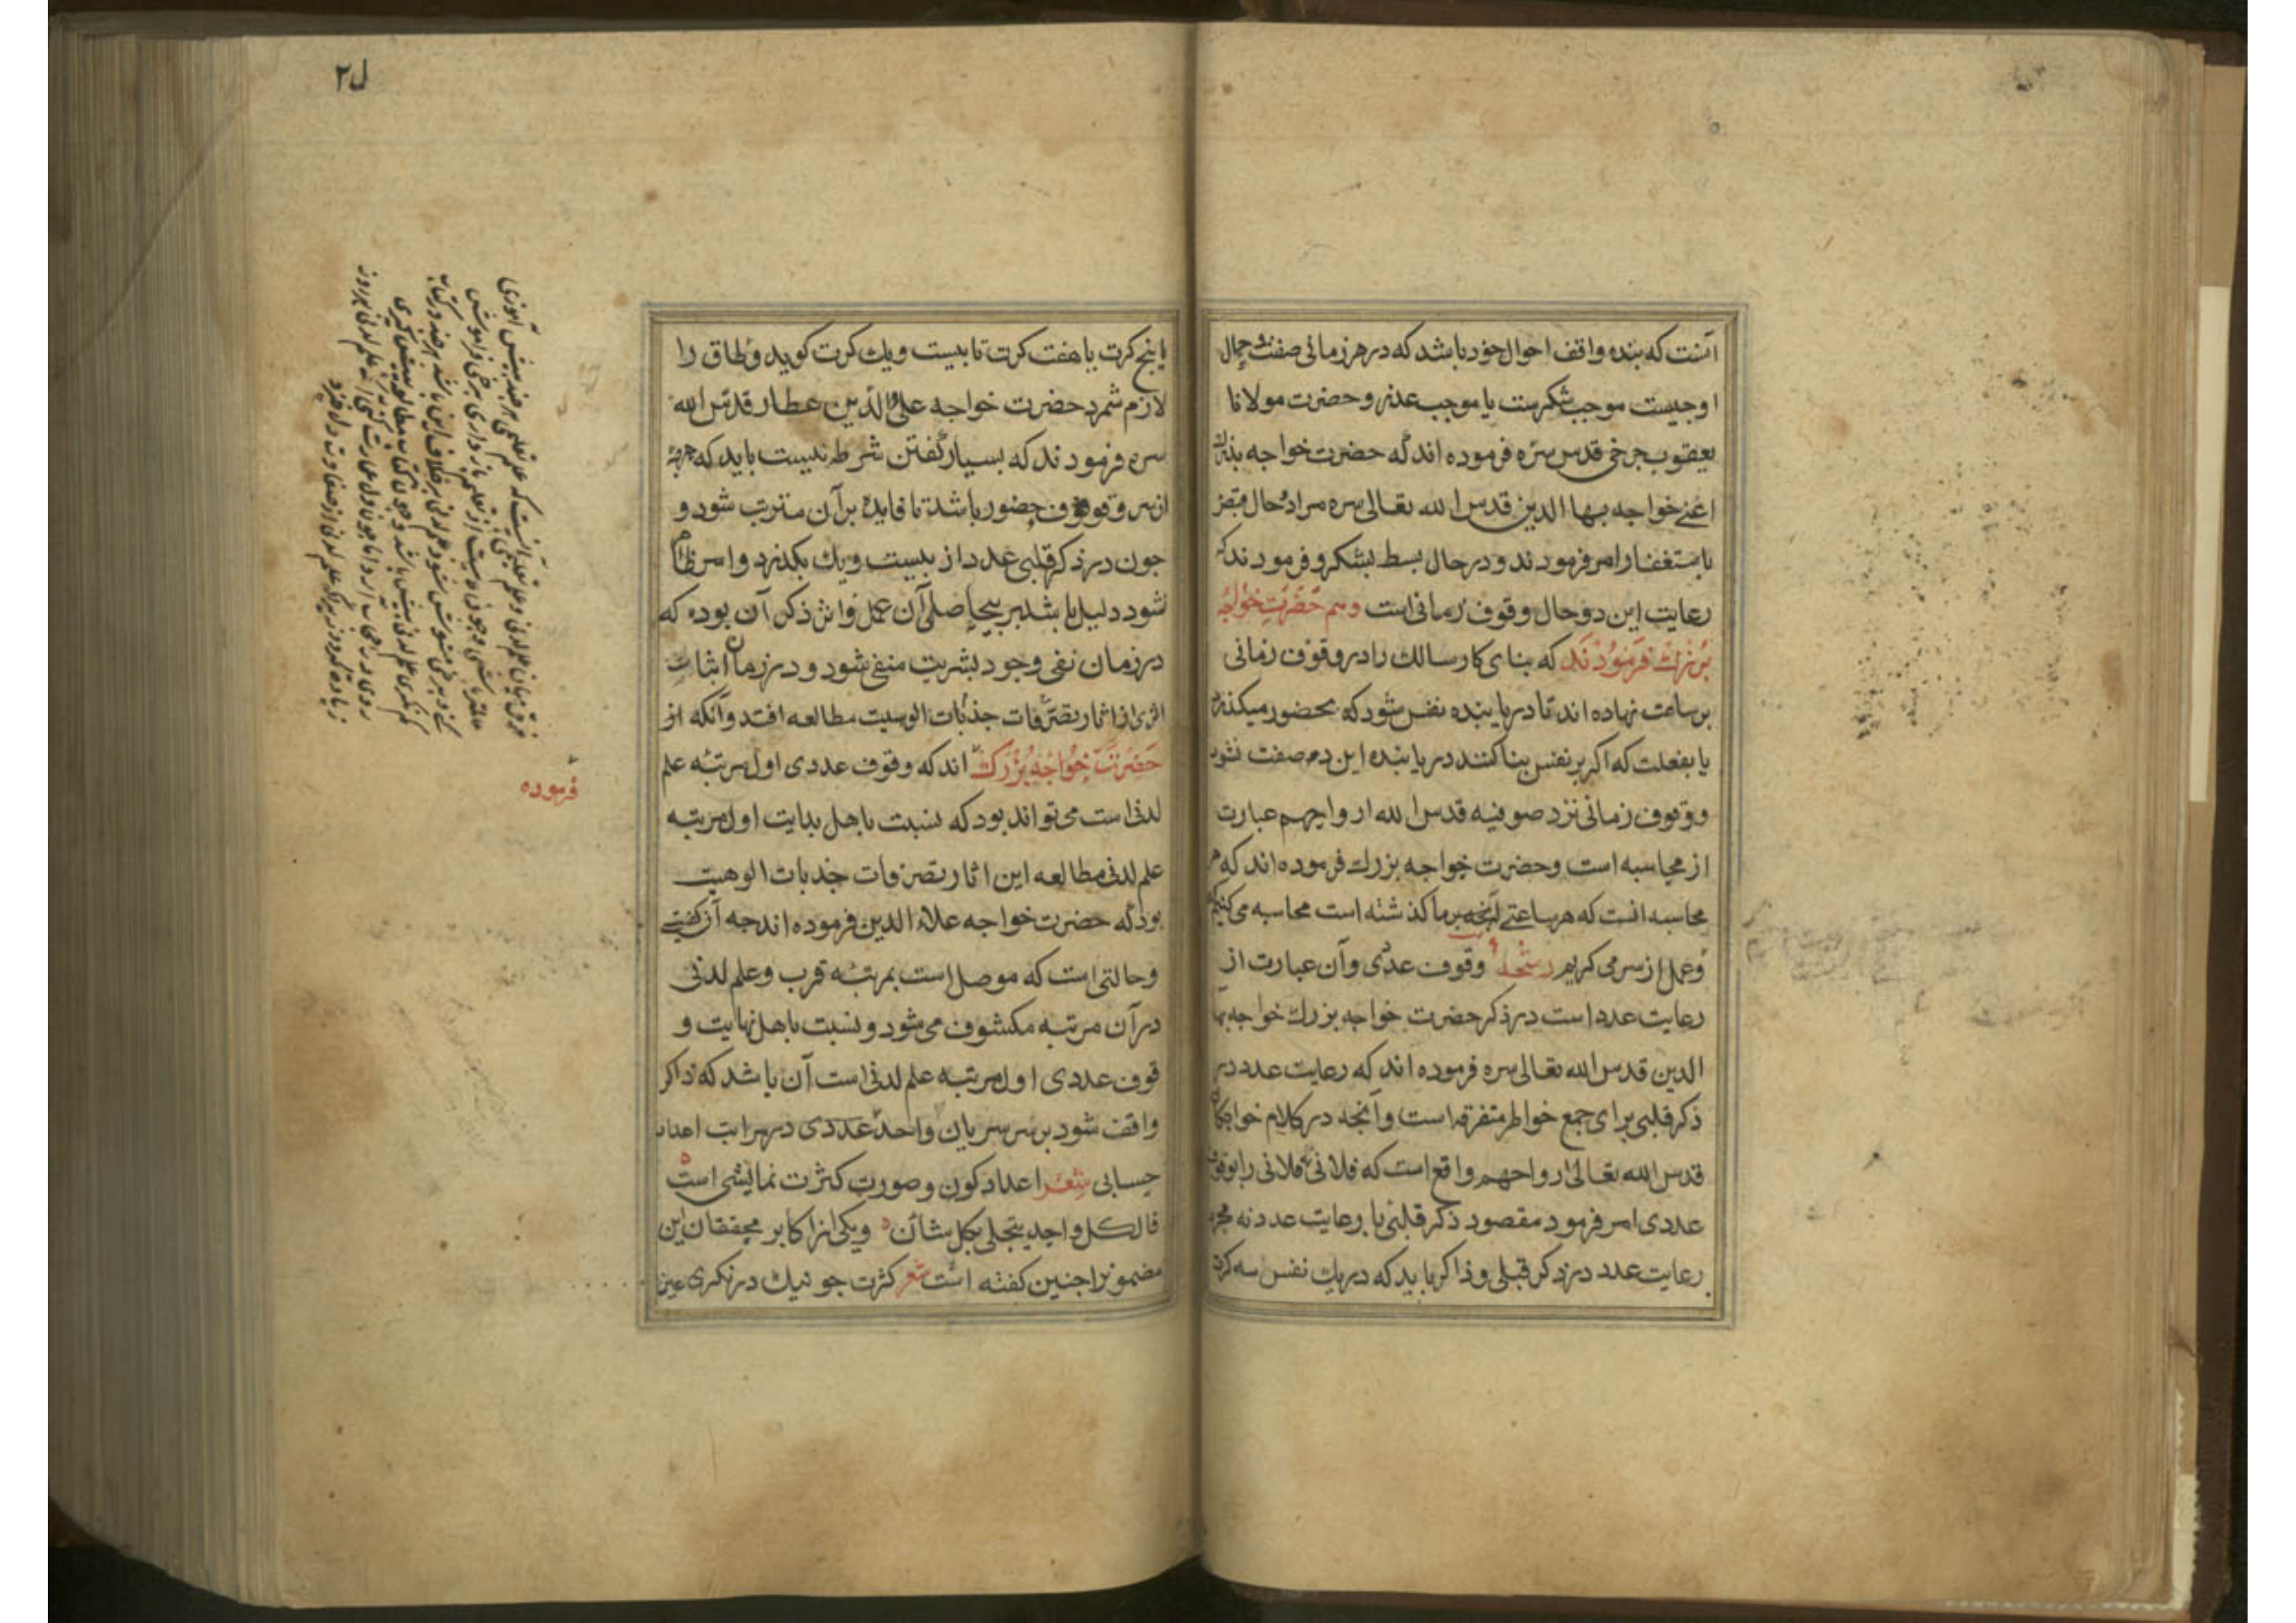 آنست که بنده واقف احوال خود باشد که در هر زمانی صفت و حال
او چیست موجب شکرست یا موجب عذر و حضرت مولانا
یعقوب چرخی قدس سره فرموده اند که حضرت خواجه بزرک
اعنی خواجه بهاالدین قدس الله تعالی سره مرا در حال قبض
باستغفار امر فرمودند و در حال بسط بشکر و فرمودند که
رعایت این دو حال وقوف زمانی است وهم حضرت خواجه
بزرك فرمودند که بنای کار سالك را در وقوف زمانی
بر ساعت نهاده اند تا دریابنده نفس شود که بحضور میکذرد
یا بغفلت که اکر بر نفس بنا کنند دریابنده این دو صفت نشود
و وقوف زمانی نزد صوفیه قدس الله ارواحهم عبارت
از محاسبه است وحضرت خواجه بزرك فرموده اند که
محاسبه انست که هر ساعتی آنچه بر ما کذشته است محاسبه می کنیم
وعمل از سر می کریم رشحه وقوف عددی وآن عبارت از
رعایت عدد است در ذکر حضرت خواجه بزرك خواجه بها
الدین قدس الله تعالی سره فرموده اند که رعایت عدد در
ذکر قلبی برای جمع خواطر متفرقه است وآنچه در کلام خواجکان
قدس الله تعالی ارواحهم واقع است که فلانی فلانی را بوقوف
عددی امر فرمود مقصود ذکر قلبی با رعایت عدد نه مجرد
رعایت عدد در ذکر قبلی وذاکر باید که در یك نفس سه کرت
ل۲
یا پنج کرت یا هفت کرت تا بیست ویك کرت کوید وطاق را
لازم شمرد حضرت خواجه علاء الدین عطار قدس الله
سره فرمودند که بسیار گفتن شرط نیست باید که هرچه
از سر وقوف وحضور باشد تا فایده بر آن مترتب شود و
چون در ذکر قلبی عدد از بیست ویك بکذرد واثر ظاهر
نشود دلیل باشد بر بیحاصلی آن عمل واثر ذکر آن بوده که
در زمان نفی وجود بشریت منفی شود و در زمان اثبات
اثری از اثار تصرفات جذبات الوهیت مطالعه افتد وآنکه از
حضرت خواجه بزرك اند که وقوف عددی اول مرتبه علم
لدنی است می تواند بود که نسبت باهل بدایت اول مرتبه
علم لدنی مطالعه این اثار تصرفات جذبات الوهیت
بود که حضرت خواجه علاء الدین فرموده اند چه آن کیفیتی
وحالتی است که موصل است بمرتبه قرب وعلم لدنی
در آن مرتبه مکشوف می شود ونسبت باهل نهایت و
قوف عددی اول مرتبه علم لدنی است آن باشد که ذاکر
واقف شود بر سر سریان واحد عددی در مراتب اعداد
حسابی شعر اعداد کون وصورت کثرت نمایشی است
فالکل واحد یتجلی بکل شأن ویکی از اکابر محققان این
مضمونرا چنین کفته است شعر کثرت چو نیك در نکری عین
فرموده